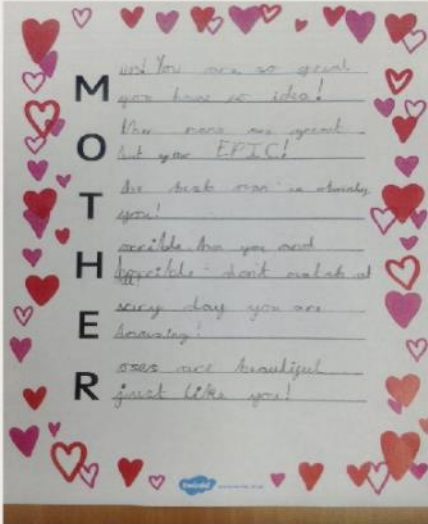 M um! You are so great
you have no idea!
O ther mums are great
but your EPIC!
T he best mum is obviously
you!
H orrible hm you and
horrible don't match at
E very day you are
amazing!
R oses are beautiful
just like you!
twinkl